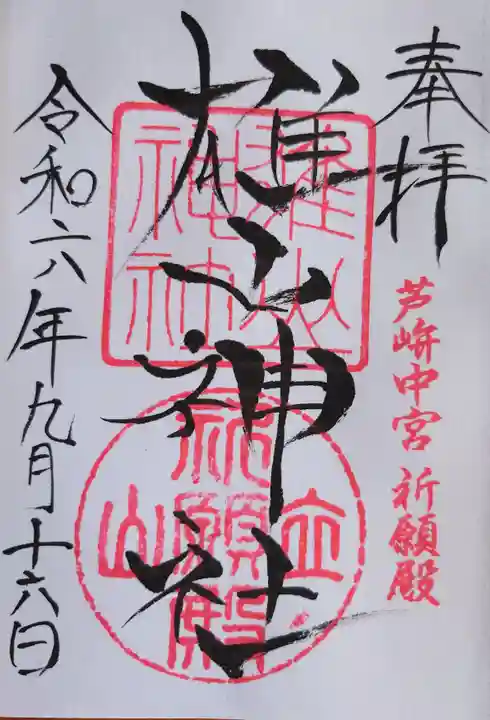 奉拝
芦峅中宮 祈願殿
雄山神社
雄山神社
立山
祈願殿
令和六年九月十六日